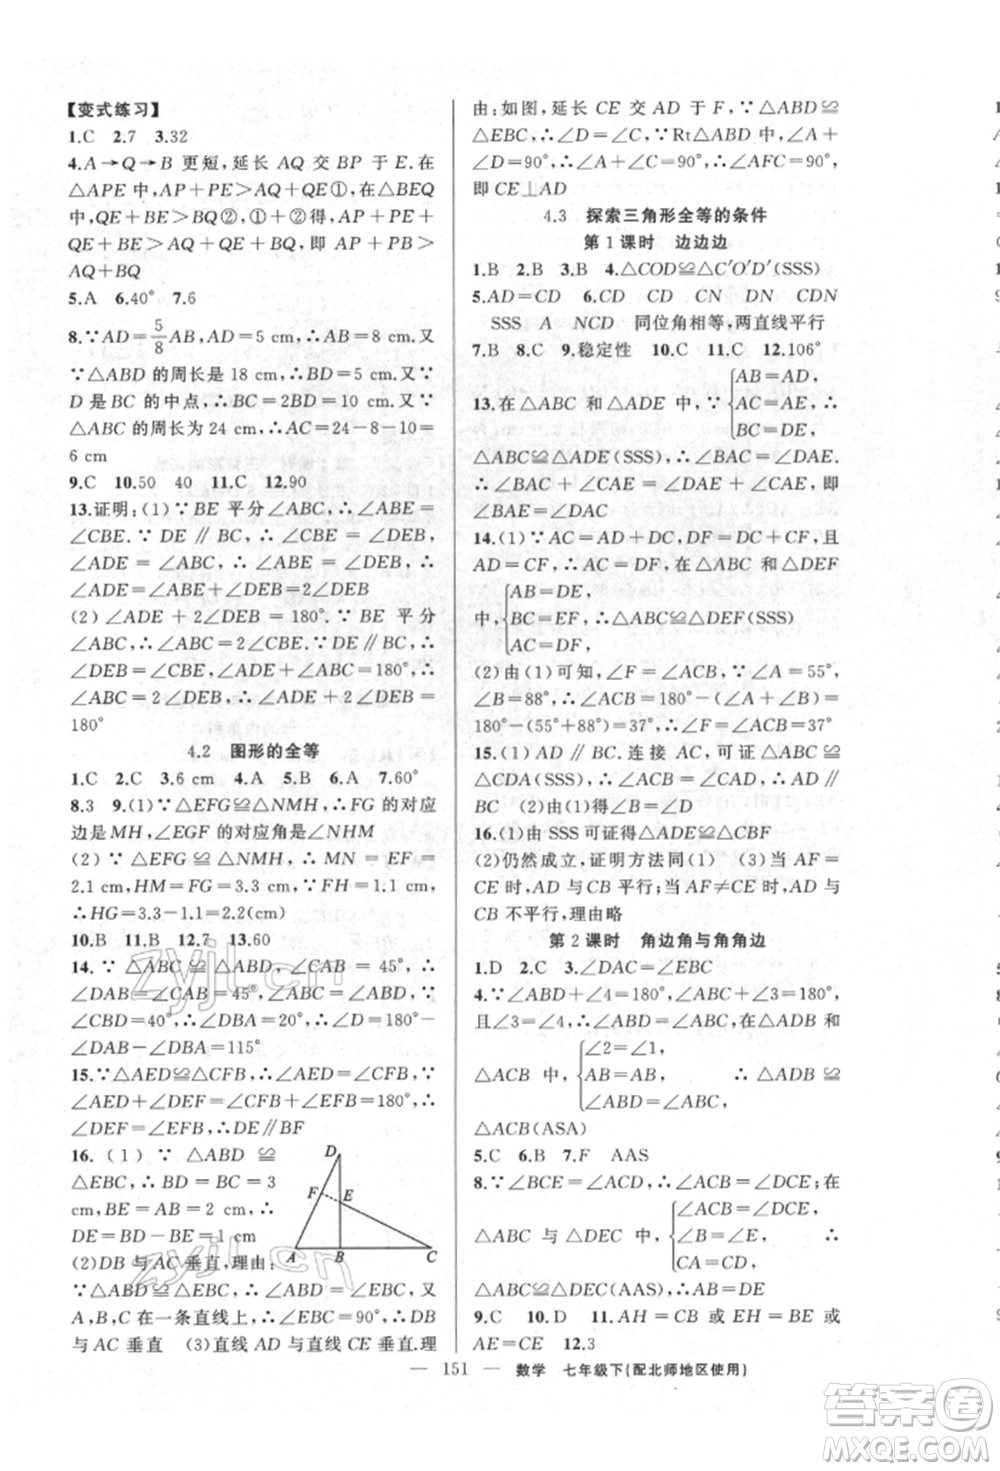 【变式练习】
1.C 2.7 3.32
4.A→Q→B 更短,延长 AQ 交 BP 于 E.在
△APE 中,AP+PE>AQ+QE①,在△BEQ
中,QE+BE>BQ②,①+②得,AP+PE+
QE+BE>AQ+QE+BQ,即 AP+PB>
AQ+BQ
5.A 6.40° 7.6
8.∵AD=5/8AB,AD=5 cm,∴AB=8 cm.又
∵△ABD 的周长是 18 cm,∴BD=5 cm.又∵
D 是 BC 的中点,∴BC=2BD=10 cm.又∵
△ABC 的周长为 24 cm,∴AC=24-8-10=
6 cm
9.C 10.50 40 11.C 12.90
13.证明:(1)∵BE 平分∠ABC,∴∠ABE=
∠CBE.∵DE∥BC,∴∠DEB=∠CBE,
∠ADE=∠ABC=∠ABE+∠CBE,∴
∠ADE=∠ABC=2∠DEB=2∠DEB
(2)∠ADE+2∠DEB=180°.∵BE 平分
∠ABC,∴∠ABC=2∠CBE.∵DE∥BC,∴
∠DEB=∠CBE,∠ADE+∠ABC=180°,∴
∠ABC=2∠DEB,∴∠ADE+2∠DEB=
180°
4.2 图形的全等
1.C 2.C 3.6 cm 4.A 5.B 6.A 7.60°
8.3 9.(1)∵△EFG≌△NMH,∴FG 的对应
边是MH,∠EGF 的对应角是∠NHM
(2)∵△EFG≌△NMH,∴MN=EF=
2.1 cm,HM=FG=3.3 cm,∵FH=1.1 cm,
∴HG=3.3-1.1=2.2(cm)
10.B 11.B 12.7 13.60
14.∵△ABC≌△BAD,∴∠ABC=
∠DAB=∠CAB=45°,∵∠ABC=∠ABD+
∠CBD=40°,∴∠DBA=20°,∴∠D=180°-
∠DAB-∠DBA=115°
15.∵△AED≌△CFB,∴∠AED=∠CFB,
∵∠AED+∠DEF=∠CFB+∠EFB=180°,∴
∠DEF=∠EFB,∴DE∥BF
16.(1)∵△ABD≌
△EBC,∴BD=BC=3
cm,BE=AB=2 cm,∴
DE=BD-BE=1 cm
(2)DB 与AC 垂直.理由:
∵△ABD≌△EBC,∴∠ABD=∠EBC,又∵
A,B,C 在一条直线上,∴∠EBC=90°,∴DB
与AC 垂直 (3)直线 AD 与直线 CE 垂直.理
D
F
E
A
B
C
由:如图,延长 CE 交 AD 于 F,∵△ABD≌
△EBC,∴∠D=∠C,∵Rt△ABD 中,∠A+
∠D=90°,∴∠A+∠C=90°,∴∠AFC=90°,
即CE⊥AD
4.3 探索三角形全等的条件
第 1 课时 边边边
1.B 2.B 3.B 4.△COD≌△C′O′D′(SSS)
5.AD=CD 6.CD CD CN DN CDN
SSS A NCD 同位角相等,两直线平行
7.B 8.C 9.稳定性 10.C 11.C 12.106°
13.在△ABC 和△ADE 中,∵{AB=AD,
AC=AE,∴
BC=DE,
△ABC≌△ADE,∴∠BAC=∠DAE,∴
∠BAE+∠CAE=∠DAC+∠CAE,∴
∠BAE=∠DAC
14.(1)∵AC=AD+DC,DF=DC+CF,且
AD=CF,∴AC=DF,在△ABC 和△DEF
中,∵{AB=DE,
BC=EF,∴△ABC≌△DEF(SSS)
AC=DF,
(2)由(1)可知,∠F=∠ACB,∵∠A=55°,
∠B=88°,∴∠ACB=180°-(∠A+∠B)=
180°-(55°+88°)=37°,∴∠F=∠ACB=37°
15.(1)AD∥BC.连接 AC,可证△ABC≌
△CDA(SSS),∴∠DAC=∠ACB,∴AD∥
BC (2)由(1)得∠B=∠D
16.(1)由 SSS可证得△ADE≌△CBF
(2)仍然成立,证明方法同(1) (3)当 AF=
CE 时,AD 与CB 平行;当 AF≠CE 时,AD 与
CB 不平行,理由略
第 2 课时 角边角与角角边
1.D 2.C 3.∠DAC=∠EBC
4.∵∠3+∠ABD=180°,∠4+∠ABC=180°,
且∠3=∠4,∴∠ABD=∠ABC,在△ADB 和
△ACB 中,{∠2=∠1,
AB=AB, ∴△ADB≌
∠ABD=∠ABC,
△ACB(ASA)
5.C 6.B 7.F AAS
8.∵∠BCE=∠ACD,∴∠ACB=∠DCE;在
△ABC 与△DEC 中,{∠ACB=∠DCE
∠B=∠E, ∴
CA=CD,
△ABC≌△DEC(AAS)
9.C 10.D 11.AH=CB 或 EH=BE 或
AE=CE 12.3
— 151 — 数学 七年级下(配北师地区使用)
zyjl.cn
zyjl.cn
答案圈
MXQE.COM